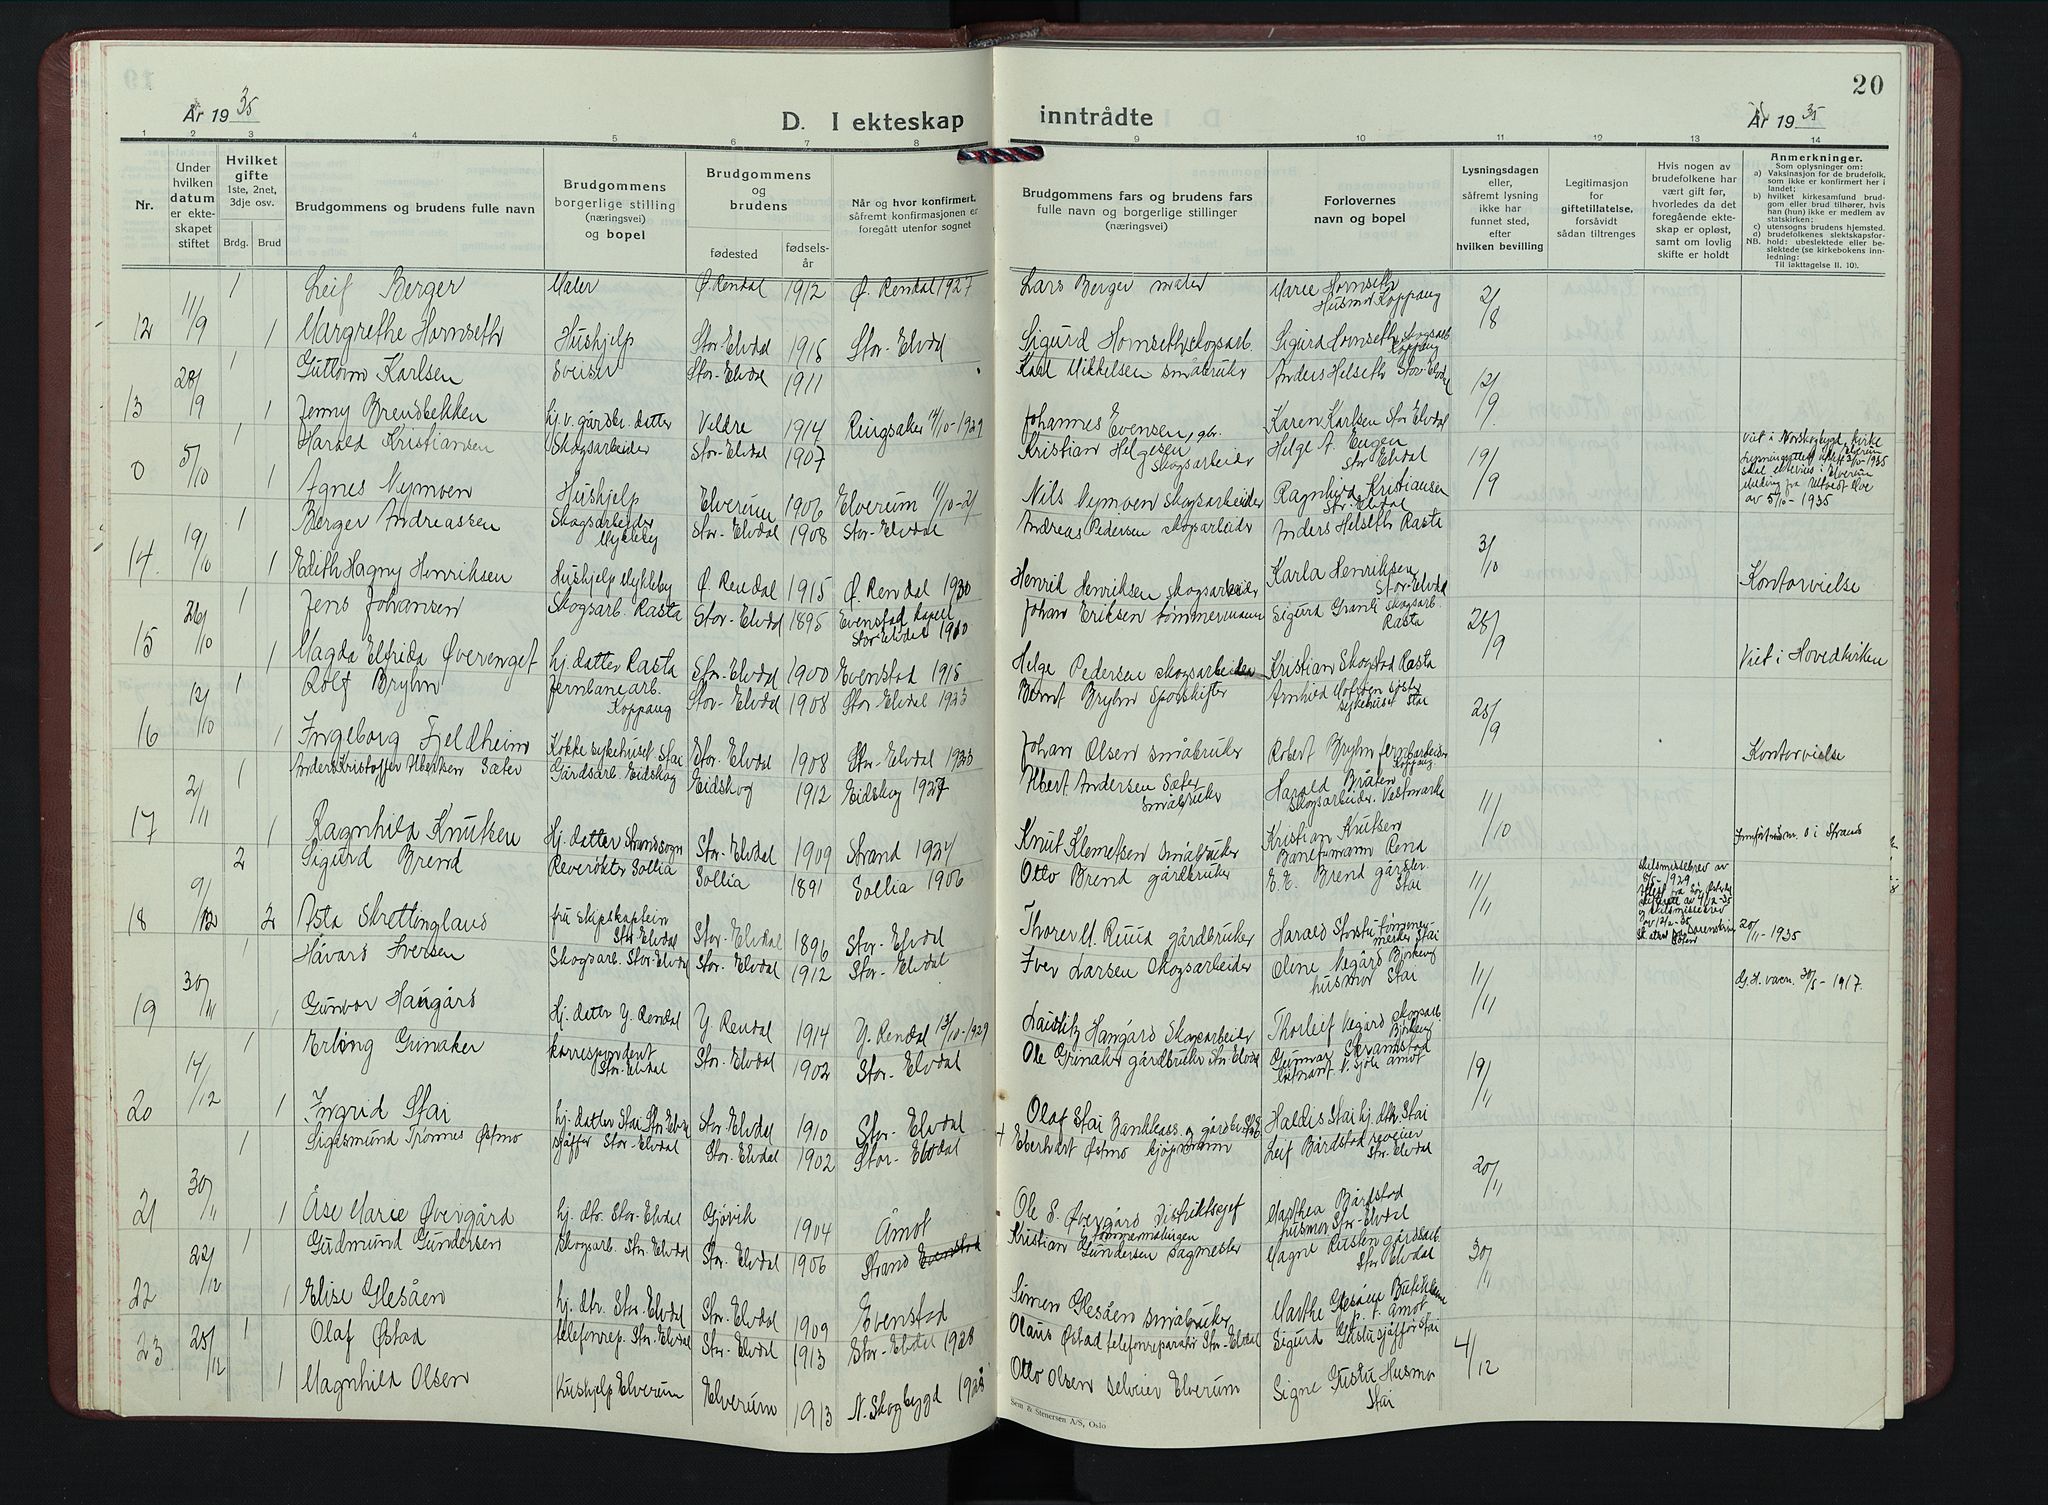 20
År 1935
D. I ekteskap inntrådte
År 1935
1 2 3 4 5 6 7 8 9 10 11 12 13 14
Nr.
Under hvilken datum er ekteskapet stiftet
Hvilket gifte 1ste, 2net, 3dje osv.
Brdg. Brud
Brudgommens og brudens fulle navn
Brudgommens borgerlige stilling (næringsvei) og bopel
Brudgommens og brudens
fødested fødselsår
Når og hvor konfirmert, såfremt konfirmasjonen er foregått utenfor sognet
Brudgommens fars og brudens fars fulle navn og borgerlige stillinger (næringsvei)
Forlovernes navn og bopel
Lysningsdagen eller, såfremt lysning ikke har funnet sted, efter hvilken bevilling
Legitimasjon for giftetillatelse, forsåvidt sådan tiltrenges
Hvis nogen av brudefolkene har vært gift før, hvorledes da det foregående ekteskap er opløst, samt om lovlig skifte er holdt
Anmerkninger.
Som oplysninger om:
a) Vaksinasjon for de brudefolk, som ikke er konfirmert her i landet;
b) hvilket kirkesamfund brudgom eller brud tilhører, hvis han (hun) ikke er medlem av statskirken;
c) utensogns brudens hjemsted.
d) brudefolkenes slektskapsforhold: ubeslektede eller beslektede (se kirkebokens innledning:
NB. Til iakttagelse II. 10).
1 Leif Berger Maler Ø. Rendal 1912 Ø. Rendal 1927 Lars Berger maler Marie Hornseth Husmor Koppang
12 11/9 1 Margrethe Hornseth Hushjelp Stor-Elvdal 1915 Stor-Elvdal Sigurd Hornseth skogsarb. Sigurd Hornseth skogsarb. Koppang 2/8
1 Guttorm Karlsen Sveiser Stor-Elvdal 1911 Karl Mikkelsen småbruker Anders Helseth Stor-Elvdal
13 28/9 1 Jenny Brendbekken hj. v. gårdbr. datter Veldre 1914 Ringsaker 14/10-1929 Johannes Evensen, gbr. Karen Karlsen Stor Elvdal 12/9
1 Harald Kristiansen Skogsarbeider Stor-Elvdal 1907 Kristian Helgesen Skogsarbeider Helge A. Engen Stor Elvdal
0 5/10 1 Agnes Nymoen Hushjelp Elverum 1906 Elverum 11/10-21 Nils Nymoen skogsarbeider Ragnhild Kristiansen Stor-Elvdal 19/9 Viet i Nordskogbygd kirke Elverum
av 5/10-1935
1 Berger Andreassen Skogsarbeider Mykleby Stor-Elvdal 1908 Stor-Elvdal Andreas Pedersen skogsarbeider Anders Helseth Rasta
14. 19/10 1 Edith Hagny Henriksen Hushjelp Mykleby Ø. Rendal 1915 Ø. Rendal 1930 Henrik Henriksen skogsarbeider Karla Henriksen Stor-Elvdal 3/10 Kontorvielse
1 Jens Johansen Skogsarb. Rasta Stor-Elvdal 1895 Evenstad kapell Stor-Elvdal 1910 Johan Eriksen tømmermann Sigurd Granli skogsarb. Rasta
15 26/10 1 Magda Elfrida Øverenget hj. datter Rasta Stor-Elvdal 1900 Evenstad 1915 Helge Pedersen skogsarbeider Kristian Skogstad Rasta 28/9 Viet i Hovedkirken
1 Rolf Bryhn Jernbanearb. Koppang Stor-Elvdal 1908 Stor-Elvdal 1923 Bernt Bryhn Sporskifter Arnhild Moføen søster sykehuset Stai
16 12/10 1 Ingeborg Fjeldheim Kokke sykehuset Stai Stor-Elvdal 1908 Stor-Elvdal 1923 Johan Olsen småbruker Robert Bryhn jernb.arbeider Koppang. 28/9 Kontorvielse
1 Anders Kristoffer Albertsen Sæter Gårdsarb. Eidskog Eidskog 1912 Eidskog 1927 Albert Andersen Sæter Småbruker Harald Bråten Skogsarbeider. Vestmarka
17 2/11 1 Ragnhild Knutsen Hj. datter Strand sogn Stor-Elvdal 1909 Strand 1924 Knut Klemetsen småbruker Kristian Knutsen Baneformann Rena 11/10
2 Sigurd Brend Reverøkter Sollia Sollia 1891 Sollia 1906 Otto Brend gårdbruker E. E. Brend gårdbr. Stai
18 9/12 2 Asta Skrettingland fru skipskaptein Stor-Elvdal Stor-Elvdal 1896 Stor-Elvdal Thorer M. Ruud gårdbruker Harald Storstu tømmermester Stai 11/11 Skilsmissebrev av 5/5-1929 20/11-1935
1 Håvard Iversen Skogsarb. Stor-Elvdal Stor-Elvdal 1912 Stor-Elvdal Iver Larsen Skogsarbeider Oline Negård Bjørkeng husmor Stai
19 30/11 1 Gunvor Haugård Hj. datter Y. Rendal Y. Rendal 1914 Y. Rendal 13/10-1929 Laurits Haugård Skogsarbeider Thorleif Negård skogsarb. Bjørkeng 11/11 G.H. vacn. 30/5-1917.
1 Erling Grinaker korrespondent Stor-Elvdal Stor-Elvdal 1902 Stor-Elvdal Ole Grinaker gårdbruker Stor Elvdal Gunnar Strandstad løitnant N. Sjøli Åmot
20 14/12 1 Ingrid Stai hj. datter Stai Stor Elvdal Stor-Elvdal 1910 Stor-Elvdal Olaf Stai Bankkass. og gårdbr. St.E. Haldis Stai hj. dtr. Stai 19/11
1 Sigismund Trønnes Østmo sjåffør Stor-Elvdal Stor-Elvdal 1902 Stor-Elvdal Eberhart Østmo kjøpmann Leif Bårdstad Stor-Elvdal
21 30/11 1 Åse Marie Øvergård hj. dtr. Stor-Elvdal Gjøvik 1904 Åmot Ole S. Øvergård distriktssjef tømmermålingen Marthea Bårdstad husmor Stor-Elvdal 20/11
1 Gudmund Gundersen Skogsarb. Stor-Elvdal Stor-Elvdal 1906 Strand Evenstad Kristian Gundersen sagmester Magne Rusten gårdsarb. Stor Elvdal
22 22/12 1 Elise Glesåen hj. dtr. Stor-Elvdal Stor-Elvdal 1909 Evenstad Simen Glesåen småbruker Marthe Glesåen p. t. Åmot 30/11
1 Olaf Østad telefonrep. Stor-Elvdal Stor-Elvdal 1913 Stor-Elvdal 1928 Olaus Østad telefonreparatør Stor-Elvdal Sigurd Gustu sjåffør Stai
23 25/12 1 Magnhild Olsen Hushjelp Elverum Elverum 1913 N. Skogbygd 1928 Otto Olsen selveier Elverum Signe Gustu Husmor Stai 4/12
Sem & Stenersen A/S, Oslo